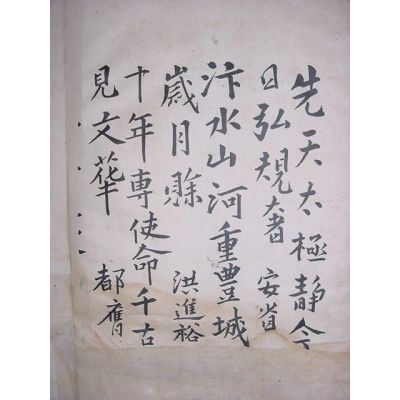 先天太極靜今
日弘規奢 安省
汴水山河重豊城
歲月賒 洪進裕
十年專使命千古
見文華 都膺